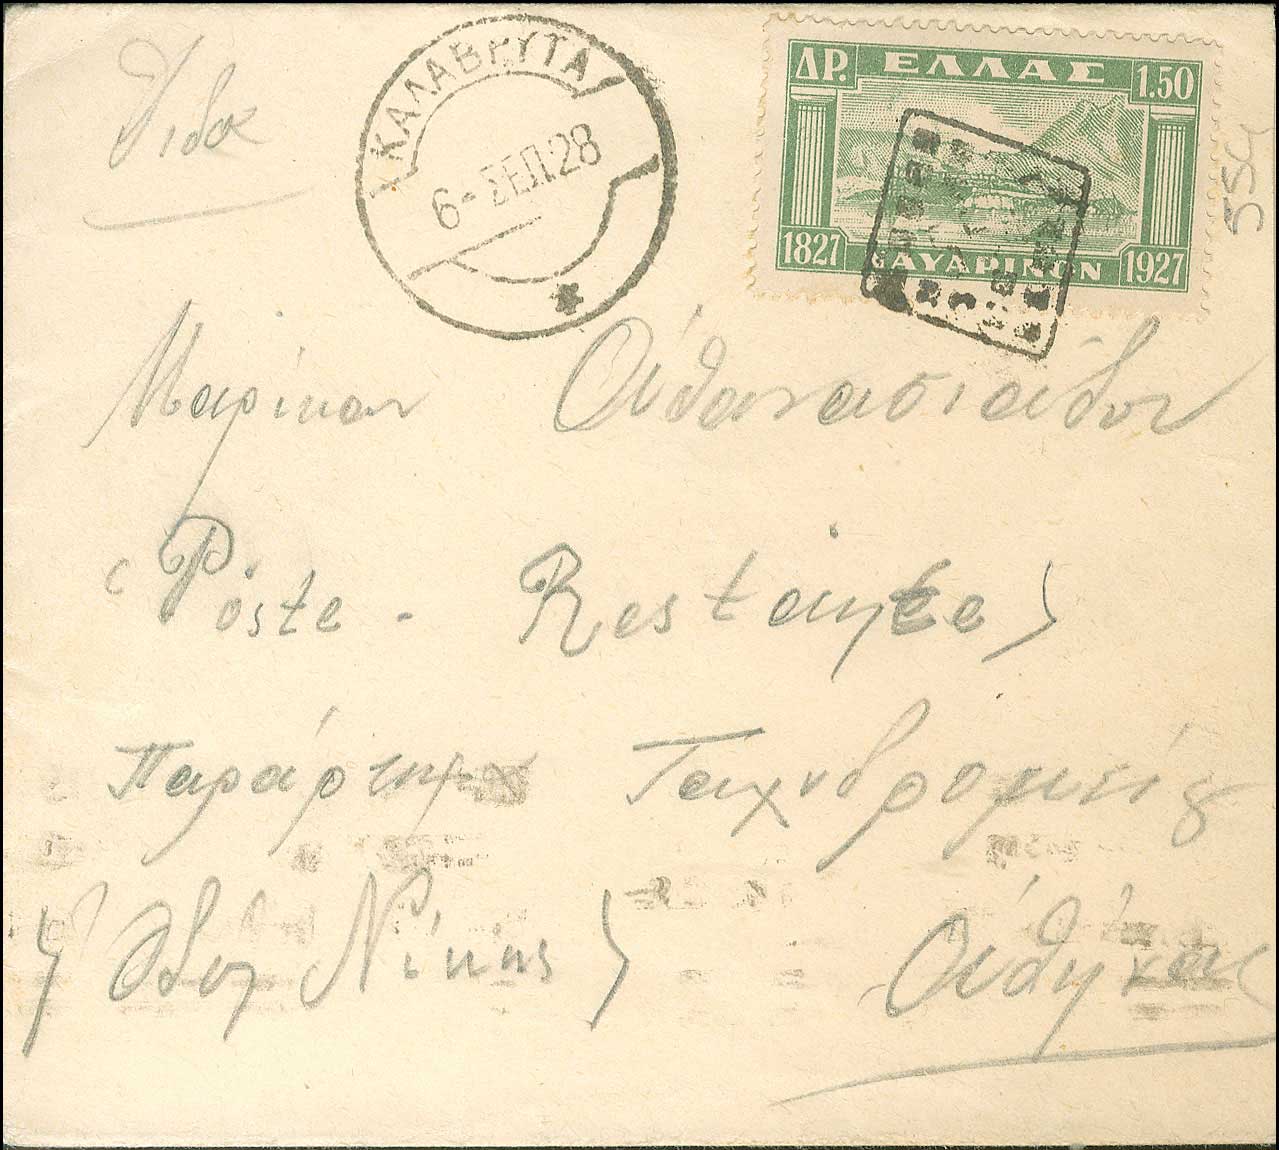 Δίδα
ΚΑΛΑΒΡΥΤΑ
6-ΣΕΠ.28
ΔΡ. ΕΛΛΑΣ 1.50
1827 ΝΑΥΑΡΙΝΟΝ 1927
554
Μαρίκαν Ἀθανασιάδου
(Poste - Restante)
Παράρτημα Ταχυδρομείου
(Ὁδοῦ Νίκης) Ἀθήνας